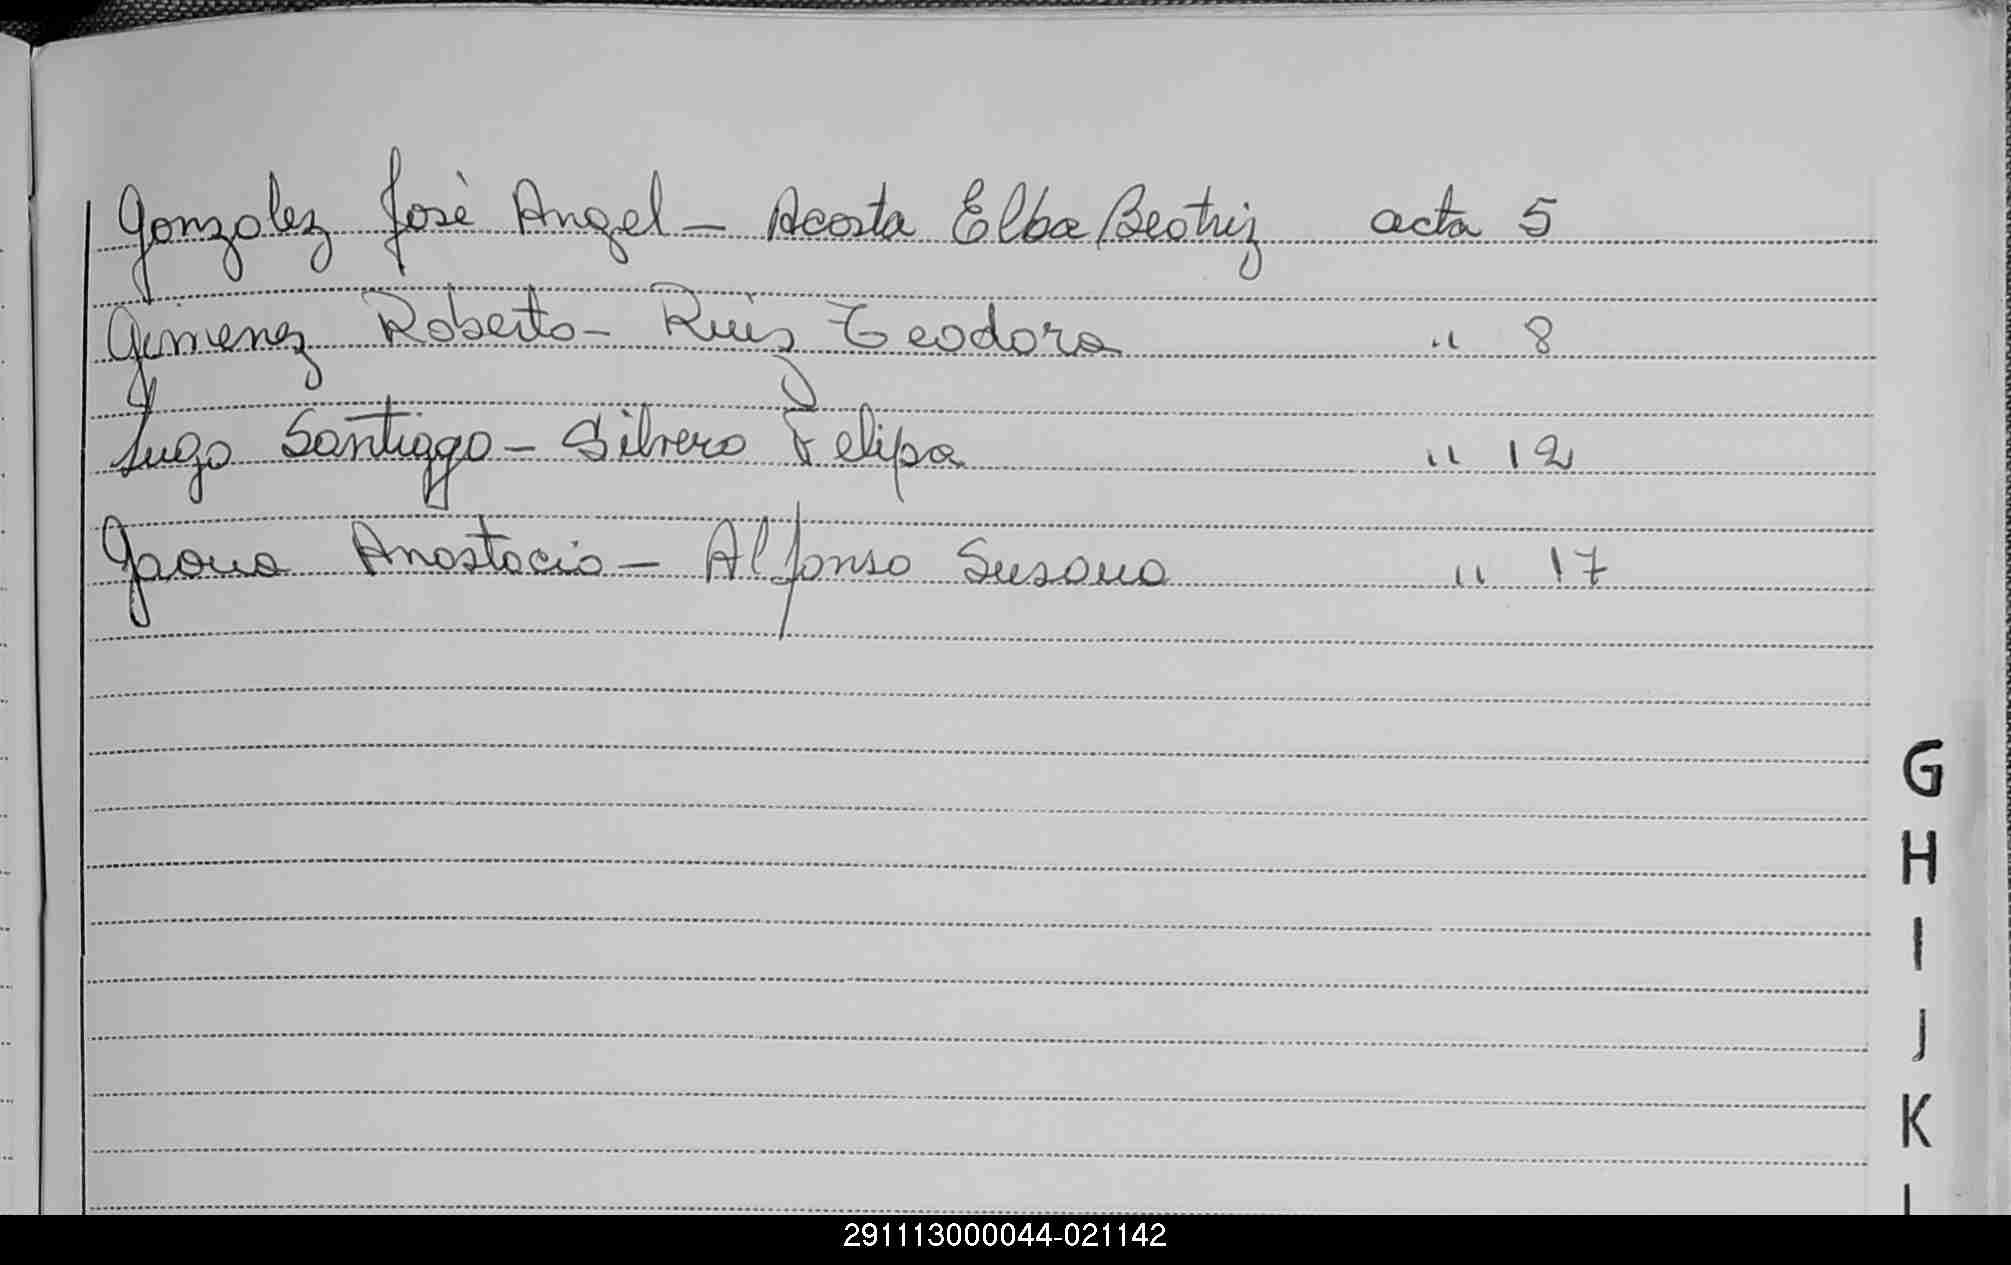 Gonzalez José Angel - Acosta Elba Beatriz acta 5
Gimenez Roberto - Ruiz Teodora " 8
Lugo Santiago - Silvero Felipa " 12
Gaona Anastacio - Alfonso Susana " 17
G
H
I
J
K
L
291113000044-021142